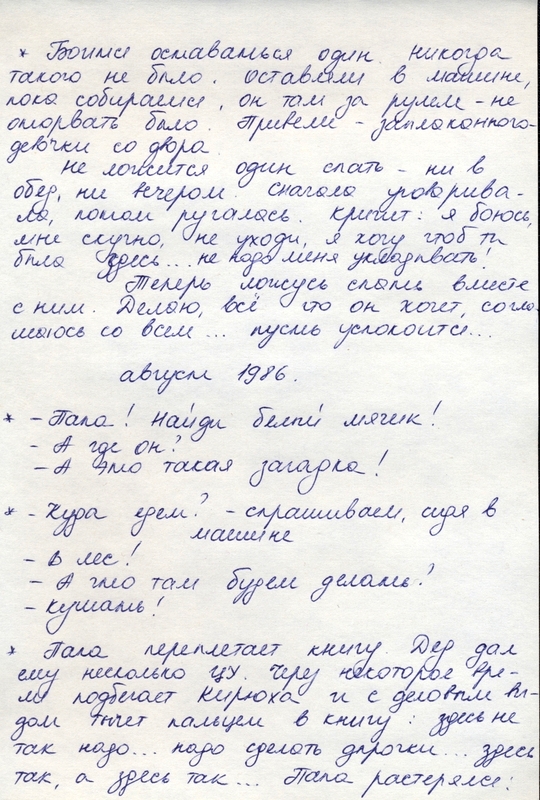 * Боимся оставаться один. Никогда
такого не было. Оставляли в машине,
пока собираемся, он там за рулем - не
оторвать было. Привели - заплаканного -
девочки со двора.
Не ложится один спать - ни в
обед, ни вечером. Сначала уговарива-
ла, потом ругалась. Кричит: я боюсь,
мне скучно, не уходи, я хочу чтоб ты
была здесь... не надо меня укладывать!
Теперь ложусь спать вместе
с ним. Делаю, всё что он хочет, согла-
шаюсь со всем... пусть успокоится...
август 1986.
* - Папа! Найди белый мячик!
- А где он?
- А это такая загадка!
* - Куда едем? - спрашиваем, сидя в
машине
- В лес!
- А что там будем делать?
- Кушать!
* Папа переплетает книгу. Дед дал
ему несколько ЦУ. Через некоторое вре-
мя подбегает Кирюха и с деловым ви-
дом тычет пальцем в книгу: здесь не
так надо... надо сделать дырочки... здесь
так, а здесь так... Папа растерялся: